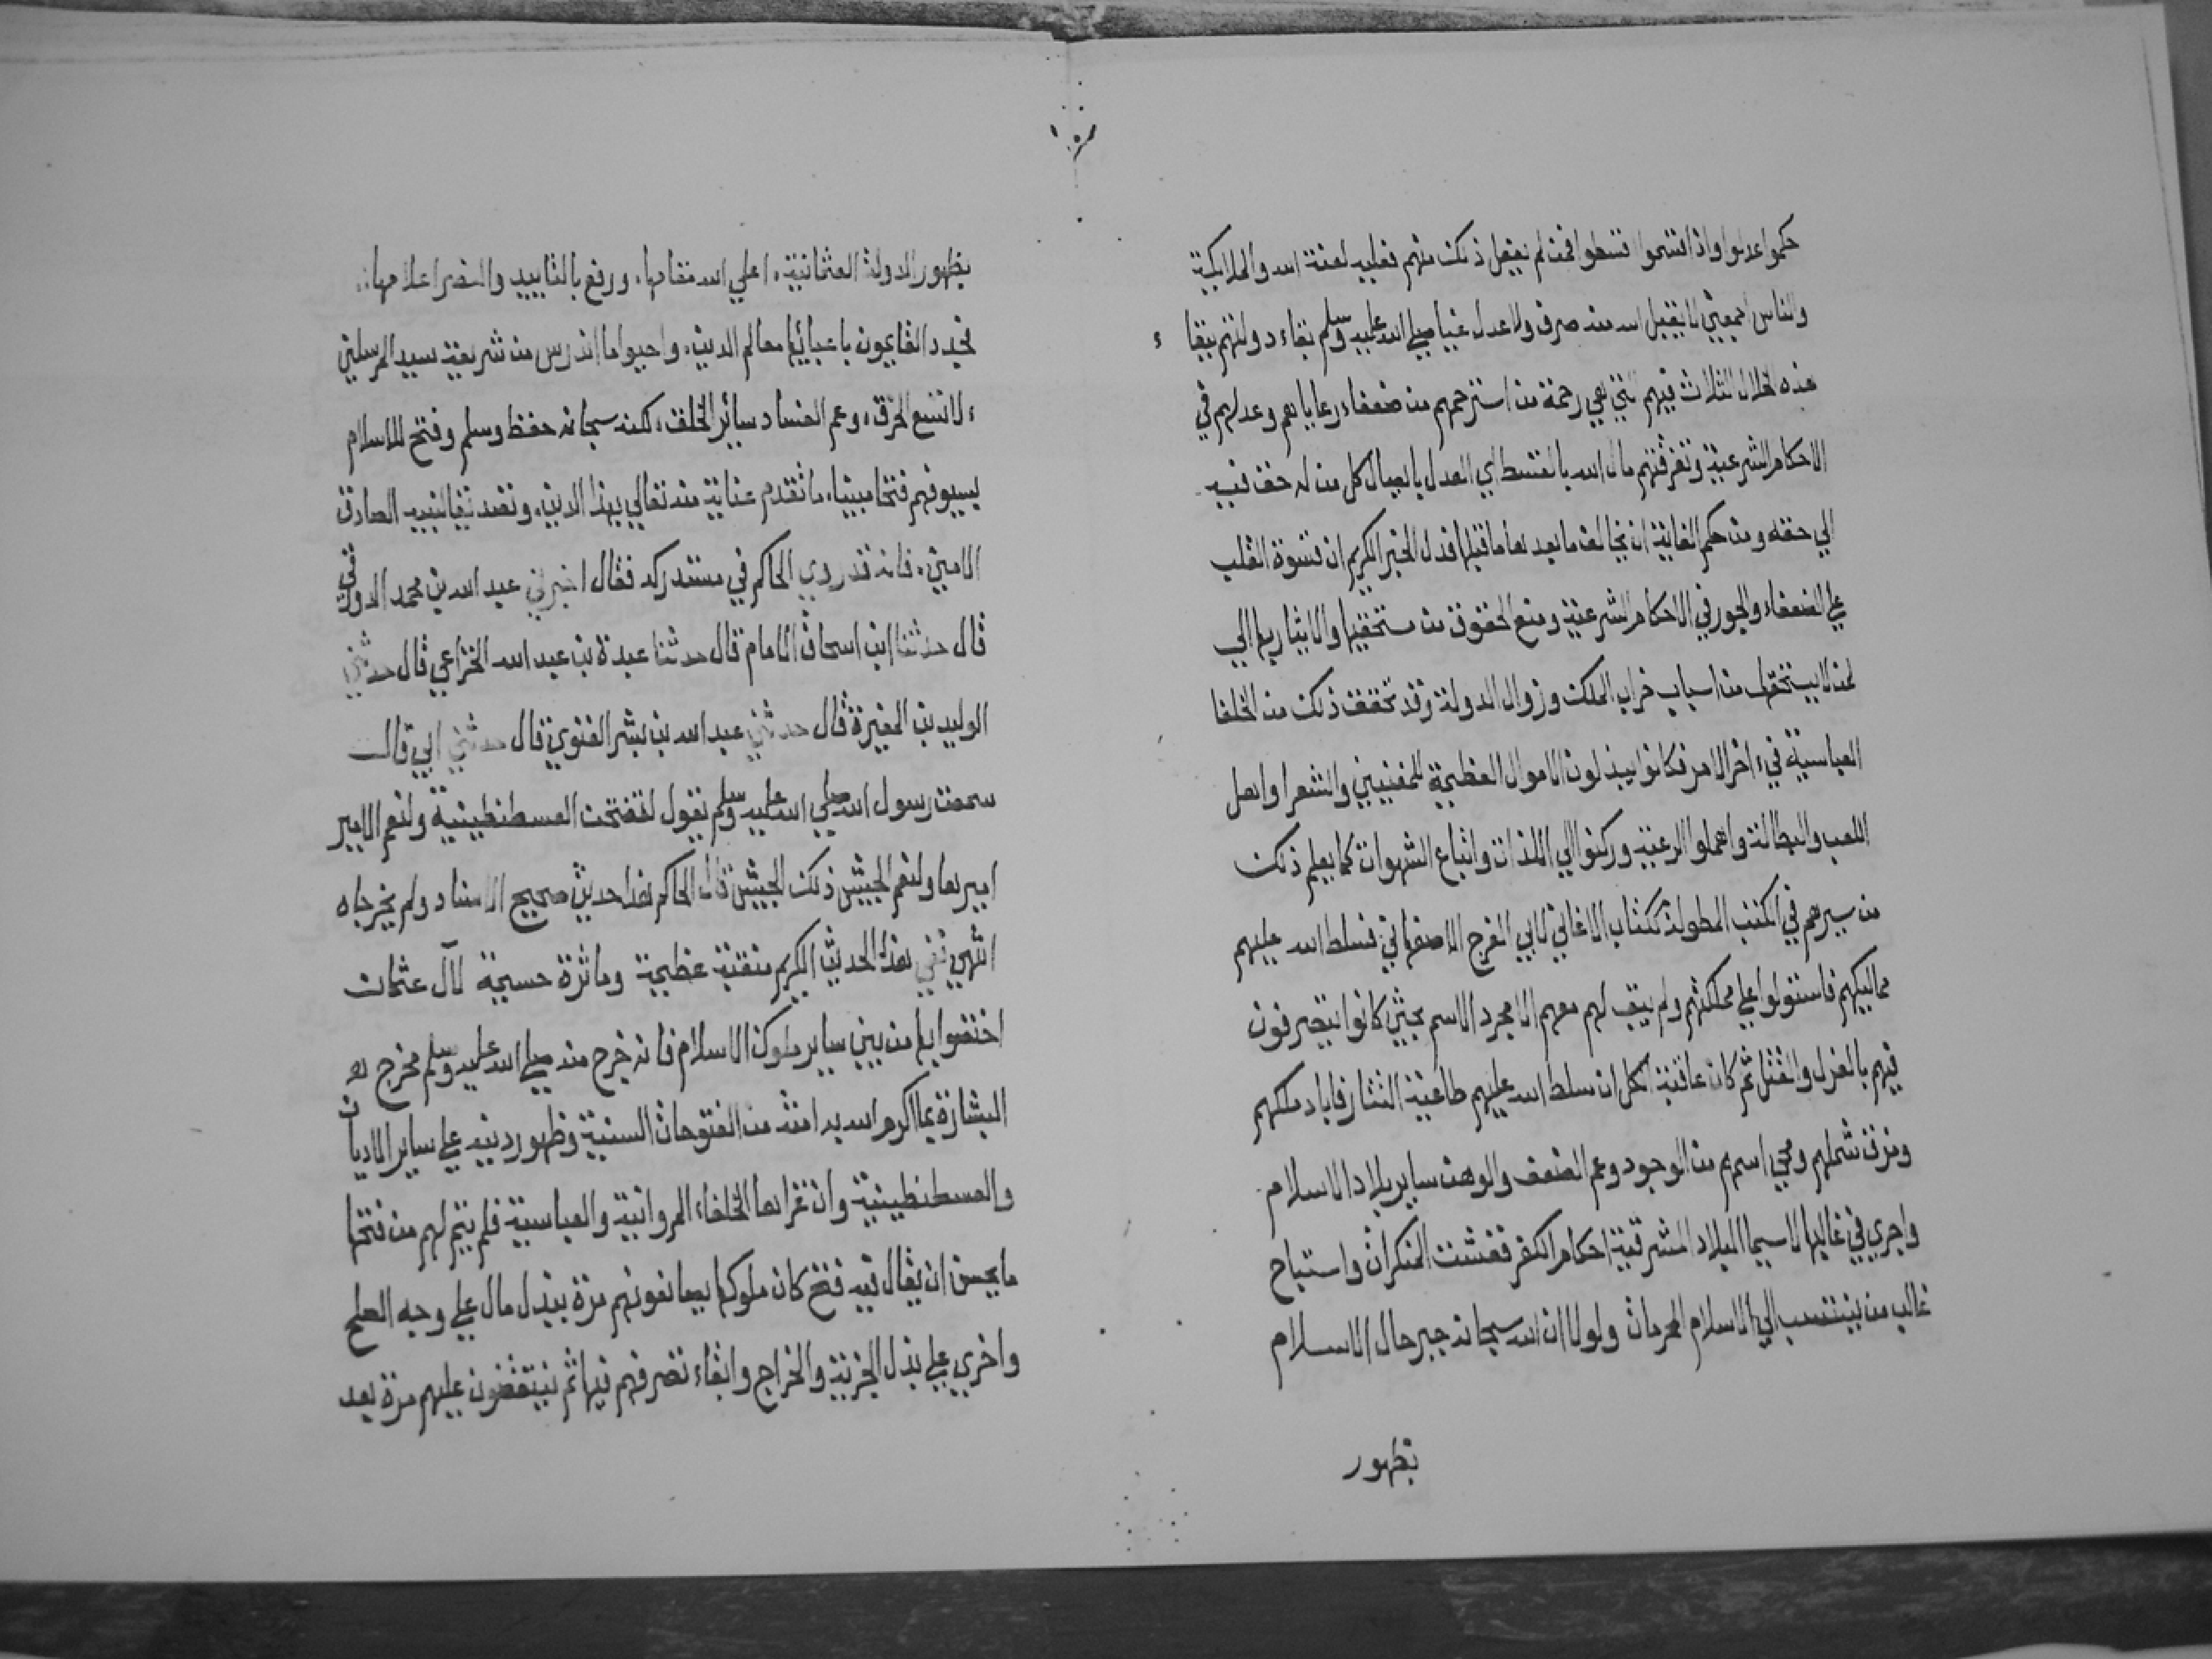 حكموا عدلوا واذا اقتسموا قسطوا فمن لم يفعل ذلك منهم فعليه لعنة الله والملايكة
والناس اجمعين لا يقبل الله منه صرف ولا عدل غيا صلى الله عليه وسلم بقاء دولتهم ببقا ء
هذه الخلال الثلاث فيهم التي هي رحمة من استرحمهم من ضعفاء رعاياهم وعدلهم في
الاحكام الشرعية وتفرقتهم مال الله بالقسط اي العدل بايصال كل من له حق فيه
الي حقه ومن حكم الغاية ان يخالف ما بعدها ما قبلها فدل الخبر الكريم ان قسوة القلب
علي الضعفاء والجور في الاحكام الشرعية ومنع الحقوق من مستحقيها والايثار بها الي
من لا يستحقها من اسباب خراب الملك وزوال الدولة وقد تحقق ذلك من الخلفا
العباسية في ءاخر الامر فكانوا يبذلون الاموال العظيمة للمغنيين والشعرا واهل
اللعب والبطالة واهملوا الرعية وركنوا الي اللذات واتباع الشهوات كما يعلم ذلك
من سيرهم في الكتب المطولة ككتاب الاغاني لابي الفرج الاصفهاني فسلط الله عليهم
مماليكهم فاستولوا علي مملكتهم ولم يبق لهم معهم الا مجرد الاسم بحيث كانوا يتصرفون
فيهم بالعزل والقتل ثم كان عاقبة الكل ان سلط الله عليهم طاغية التتار فاباد ملكهم
ومزق شملهم ومحي اسمهم من الوجود وعم الضعف والوهن ساير بلاد الاسلام
واجري في غالبها لاسيما البلاد المشرقية احكام الكفر ففشت المنكرات واستباح
غالب من ينتسب الي الاسلام المحرمات ولولا ان الله سبحانه جبر حال الاسلام
بظهور
بظهور الدولة العثمانية، اعلي الله مقامها، ورفع بالتاييد والنصر اعلامها،
فجدد القايمون باعبائها معالم الدين، واحيوا ما اندرس من شريعة سيد المرسلين
، لاتسع الخرق، وعم الفساد سائر الخلق، لكنه سبحانه حفظ وسلم وفتح للاسلام
بسيوفهم فتحا مبينا، ما تقدم عناية منه تعالي بهذا الدين، وتصديقا لنبيه الصادق
الامين، فانه قد روي الحاكم في مستدركه فقال اخبرني عبد الله بن محمد الدورقي
قال حدثنا ابن اسحاق الامام قال حدثنا عبدة بن عبد الله الخزاعي قال حدثني
الوليد بن المغيرة قال حدثني عبد الله بن بشر الغنوي قال حدثني ابي قال
سمعت رسول الله صلي الله عليه وسلم يقول لتفتحن القسطنطينية ولنعم الامير
اميرها ولنعم الجيش ذلك الجيش قال الحاكم هذا حديث صحيح الاسناد ولم يخرجاه
انتهي ففي هذا الحديث الكريم منقبة عظيمة وماثرة جسيمة لآل عثمان
اختصوا بها من بين ساير ملوك الاسلام فانه خرج منه صلي الله عليه وسلم مخرج
البشارة بما اكرم الله به امته من الفتوحات السنية وظهور دينه علي ساير الاديان
والقسطنطينية وان غزاها الخلفاء المروانية والعباسية فلم يتم لهم من فتحها
ما يحسن ان يقال فيه فتح كان ملوكها يصانعونهم مرة ببذل مال علي وجه الصلح
واخري علي بذل الجزية والخراج وابقاء تصرفهم فيها ثم ينتقضون عليهم مرة بعد